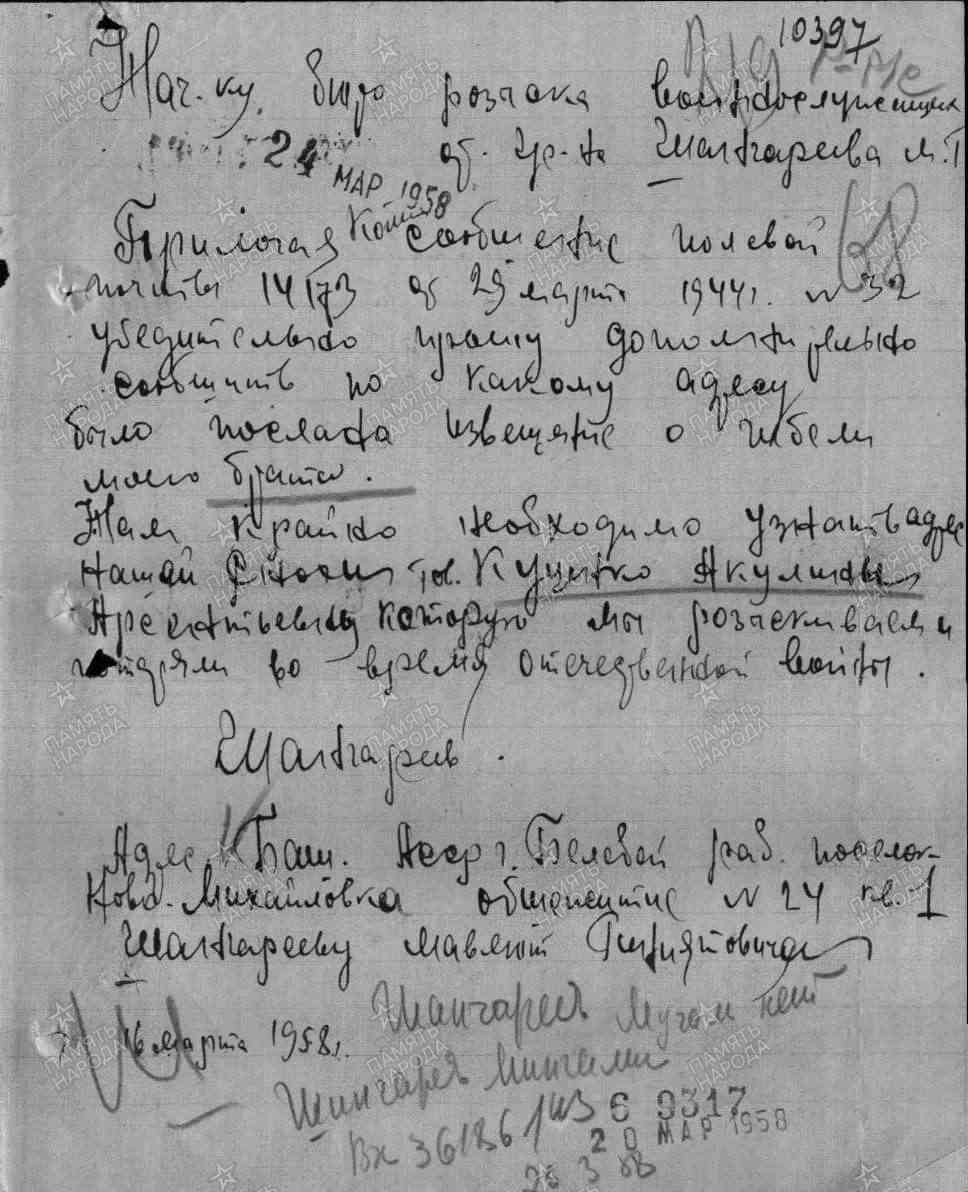 10397
Нач-ку бюро розыска военнослужащих
24 МАР 1958
от гр-на Шангареева М.Г
Прилагая копию сообщение полевой
почты 14173 от 29 марта 1944 г. № 32
убедительно прошу дополнительно
сообщить по какому адресу
было послана извещение о гибели
моего брата.
Нам крайно необходимо узнать адрес
нашей снохи гр. Куценко Акулины
которую мы розыскиваем и
потеряли во время отечественной войны.
Шангареев.
Адрес Баш. Асср г. Белебей раб. поселок
Ново-Михайловка общежитие № 24 кв. 1
Шангарееву Мавлют
16 марта 1958 г.
Шангареев
нет
Шангареев
Вх 36186
6 9317
20 МАР 1958
ПАМЯТЬ НАРОДА